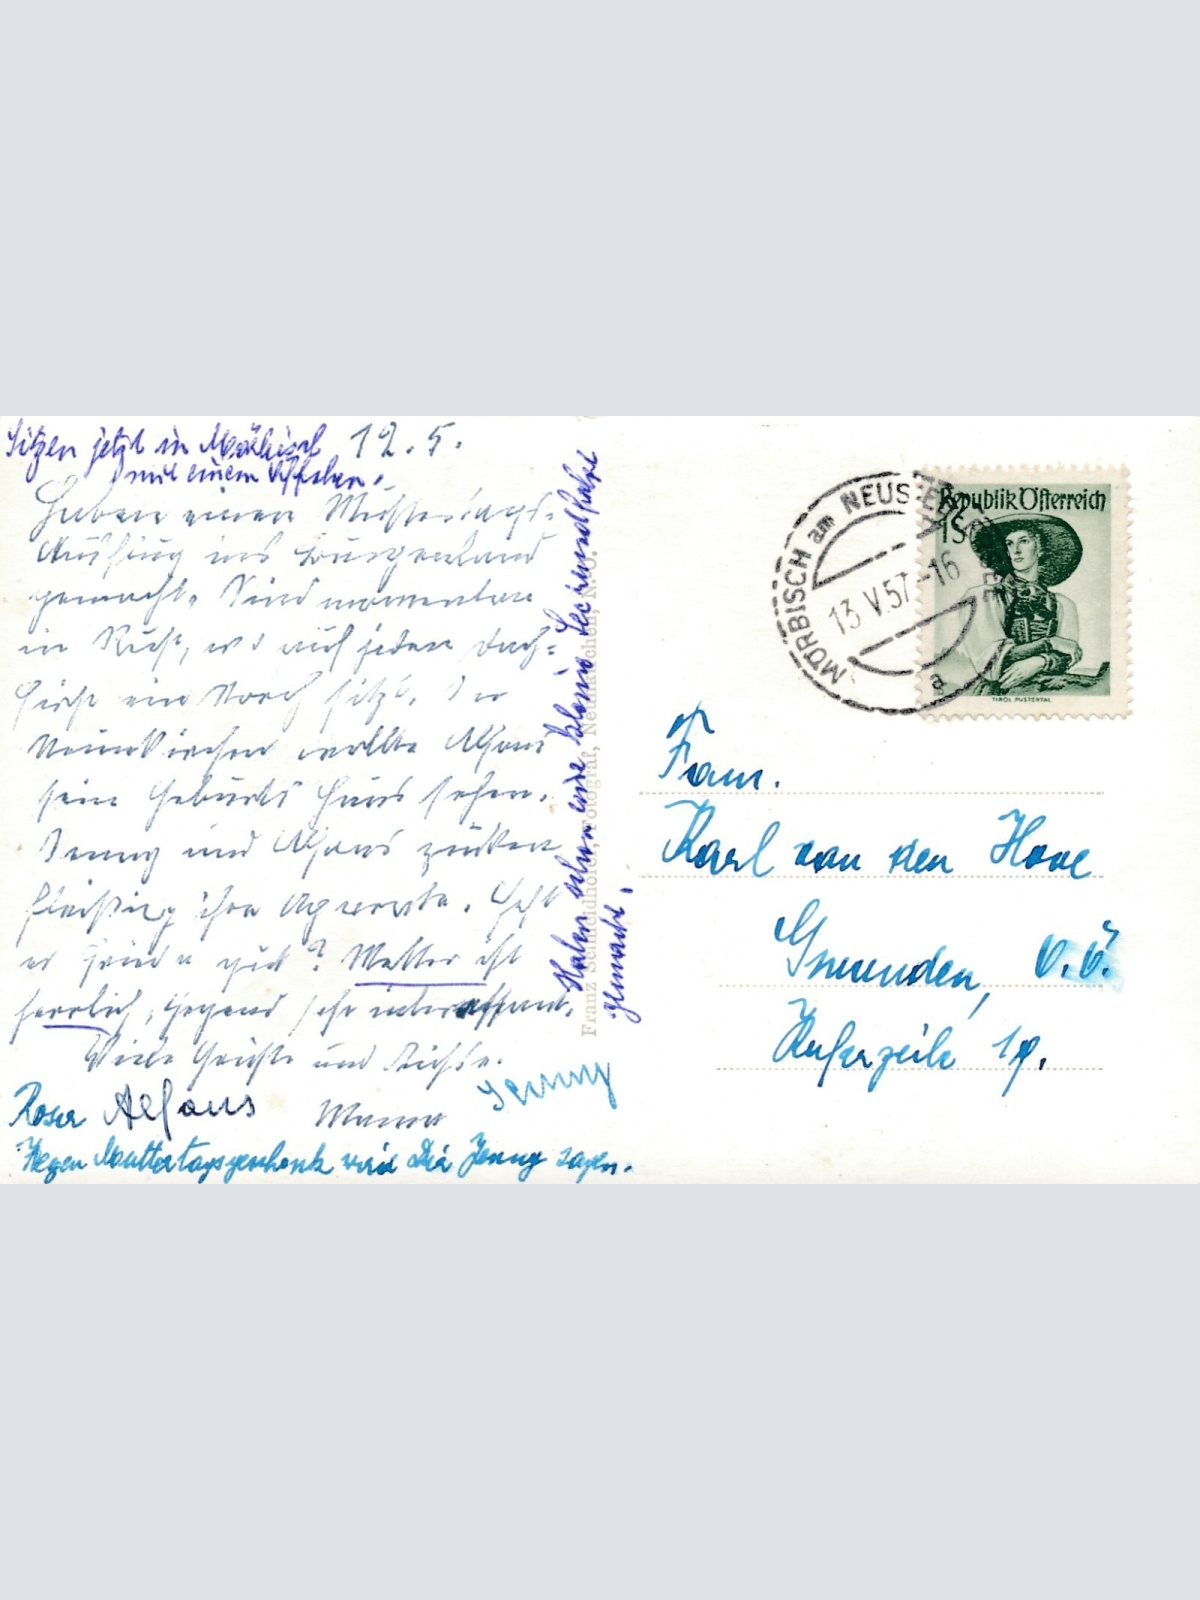 Sitzen jetzt in Mörbisch 12. 5.
mit einem Äffchen.
Haben einen Muttertags-
Ausflug ins Burgenland
gemacht. Sind momentan
in Rust, wo auf jedem Dach-
first ein Storch sitzt. In
Neunkirchen wollte Alfons
sein Geburtshaus sehen.
Jenny und Alfons zücken
fleißig ihre Apparate. Geht
es Friedl gut? Wetter ist
herrlich, Gegend sehr interessant.
Viele Grüße und Küsse.
Rosa Alfons Mama Jenny
Wegen Muttertagsgeschenk wird Dir Jenny sagen.
Haben schon eine kleine Seerundfahrt
gemacht.
Franz Schmeidhofer, Fotograf, Neunkirchen, N.Ö.
MÖRBISCH am NEUSIEDLERSEE
13. V. 57 - 16
a
Republik Österreich
1S
TIROL PUSTERTAL
Fam.
Karl van den Hove
Gmunden, O.Ö.
Kuferzeile 19.